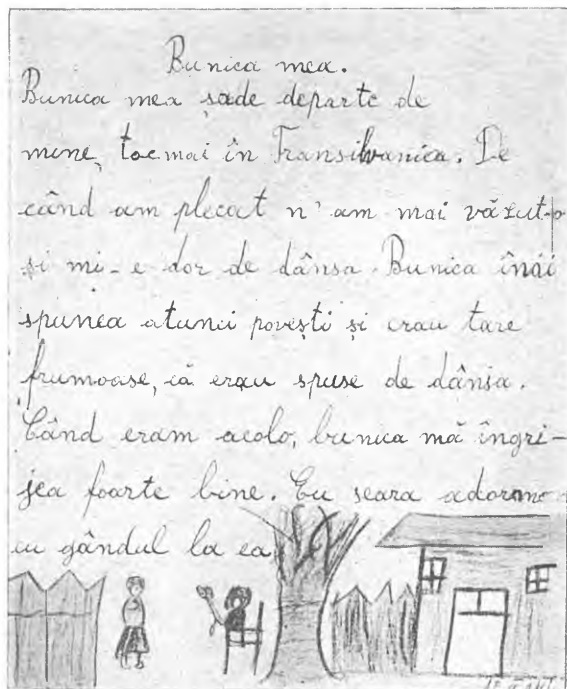 Bunica mea.
Bunica mea șade departe de
mine, tocmai în Transilvanica. De
când am plecat n'am mai văzut-o
și mi-e dor de dânsa. Bunica înăi
spunea atunci povești și erau tare
frumoase, că erau spuse de dânsa.
Când eram acolo, bunica mă îngri-
jea foarte bine. Eu seara adorm
cu gândul la ea.